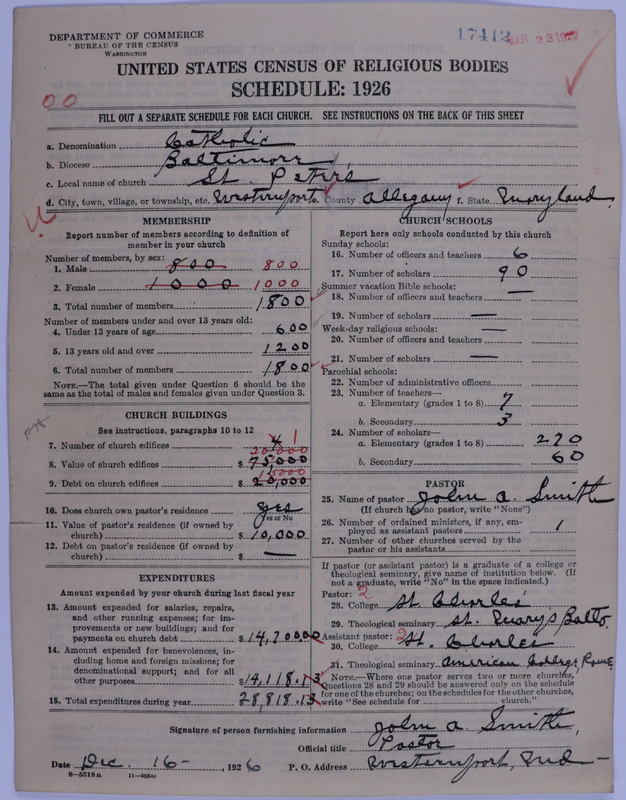 DEPARTMENT OF COMMERCE
BUREAU OF THE CENSUS
WASHINGTON
17412 MAR 23 1927
UNITED STATES CENSUS OF RELIGIOUS BODIES
SCHEDULE: 1926
00
FILL OUT A SEPARATE SCHEDULE FOR EACH CHURCH. SEE INSTRUCTIONS ON THE BACK OF THIS SHEET
a. Denomination Catholic
b. Diocese Baltimore
c. Local name of church St. Peters
d. City, town, village, or township, etc. Westernport e. County Allegany f. State Maryland
MEMBERSHIP
Report number of members according to definition of
member in your church
Number of members, by sex:
1. Male 800 800
2. Female 1000 1000
3. Total number of members 1800
Number of members under and over 13 years old:
4. Under 13 years of age 600
5. 13 years old and over 1200
6. Total number of members 1800
NOTE.—The total given under Question 6 should be the
same as the total of males and females given under Question 3.
CHURCH BUILDINGS
See instructions, paragraphs 10 to 12
7. Number of church edifices 4 1
20000
8. Value of church edifices $ 75000
15000
9. Debt on church edifices $ 20,000
10. Does church own pastor's residence yes
Yes or No
11. Value of pastor's residence (if owned by
church) $ 10,000
12. Debt on pastor's residence (if owned by
church) $ —
EXPENDITURES
Amount expended by your church during last fiscal year
13. Amount expended for salaries, repairs,
and other running expenses; for im-
provements or new buildings; and for
payments on church debt $ 14,700.00
14. Amount expended for benevolences, in-
cluding home and foreign missions; for
denominational support; and for all
other purposes $ 14,118.13
15. Total expenditures during year 28,818.13
CHURCH SCHOOLS
Report here only schools conducted by this church
Sunday schools:
16. Number of officers and teachers 6
17. Number of scholars 90
Summer vacation Bible schools:
18. Number of officers and teachers —
19. Number of scholars —
Week-day religious schools:
20. Number of officers and teachers —
21. Number of scholars —
Parochial schools:
22. Number of administrative officers
23. Number of teachers—
a. Elementary (grades 1 to 8) 7
b. Secondary 3
24. Number of scholars—
a. Elementary (grades 1 to 8) 270
b. Secondary 60
PASTOR
25. Name of pastor John A. Smith
(If church has no pastor, write "None")
26. Number of ordained ministers, if any, em-
ployed as assistant pastors 1
27. Number of other churches served by the
pastor or his assistants
If pastor (or assistant pastor) is a graduate of a college or
theological seminary, give name of institution below. (If
not a graduate, write "No" in the space indicated.)
Pastor: 2
28. College St. Charles
29. Theological seminary St. Marys Balto.
Assistant pastor: 2
30. College St. Charles
31. Theological seminary American College, Rome
NOTE.—Where one pastor serves two or more churches,
Questions 28 and 29 should be answered only on the schedule
for one of the churches; on the schedules for the other churches,
write "See schedule for church."
Signature of person furnishing information John A. Smith,
Official title Pastor
Date Dec. 16- , 1926 P. O. Address Westernport, Md —
8—5518a 11—9054a